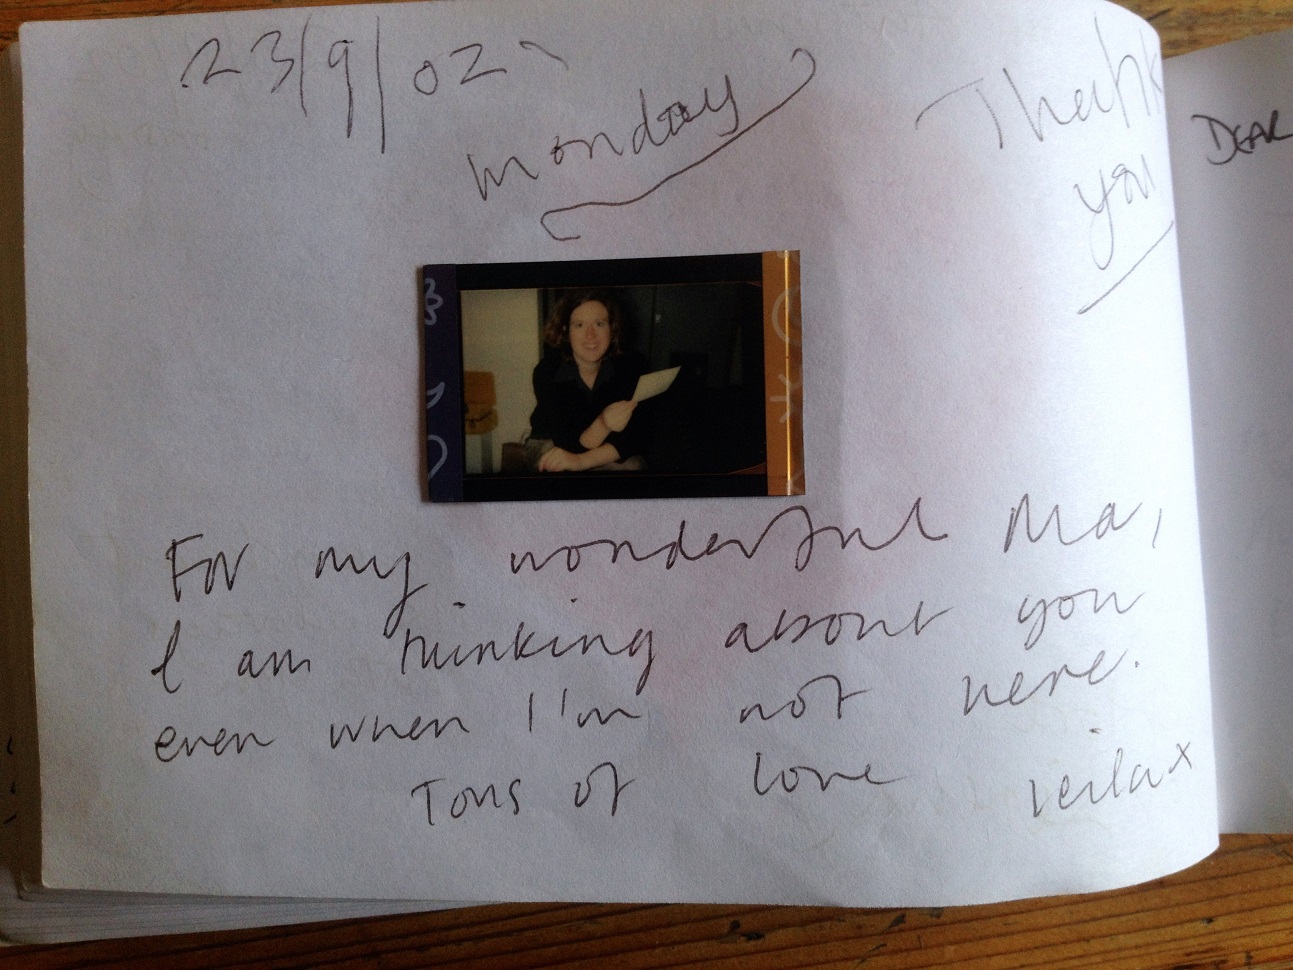 23/9/02
monday
Thank
you
For my wonderful Ma,
I am thinking about you
even when I'm not here.
Tons of love Leila x
DEAR